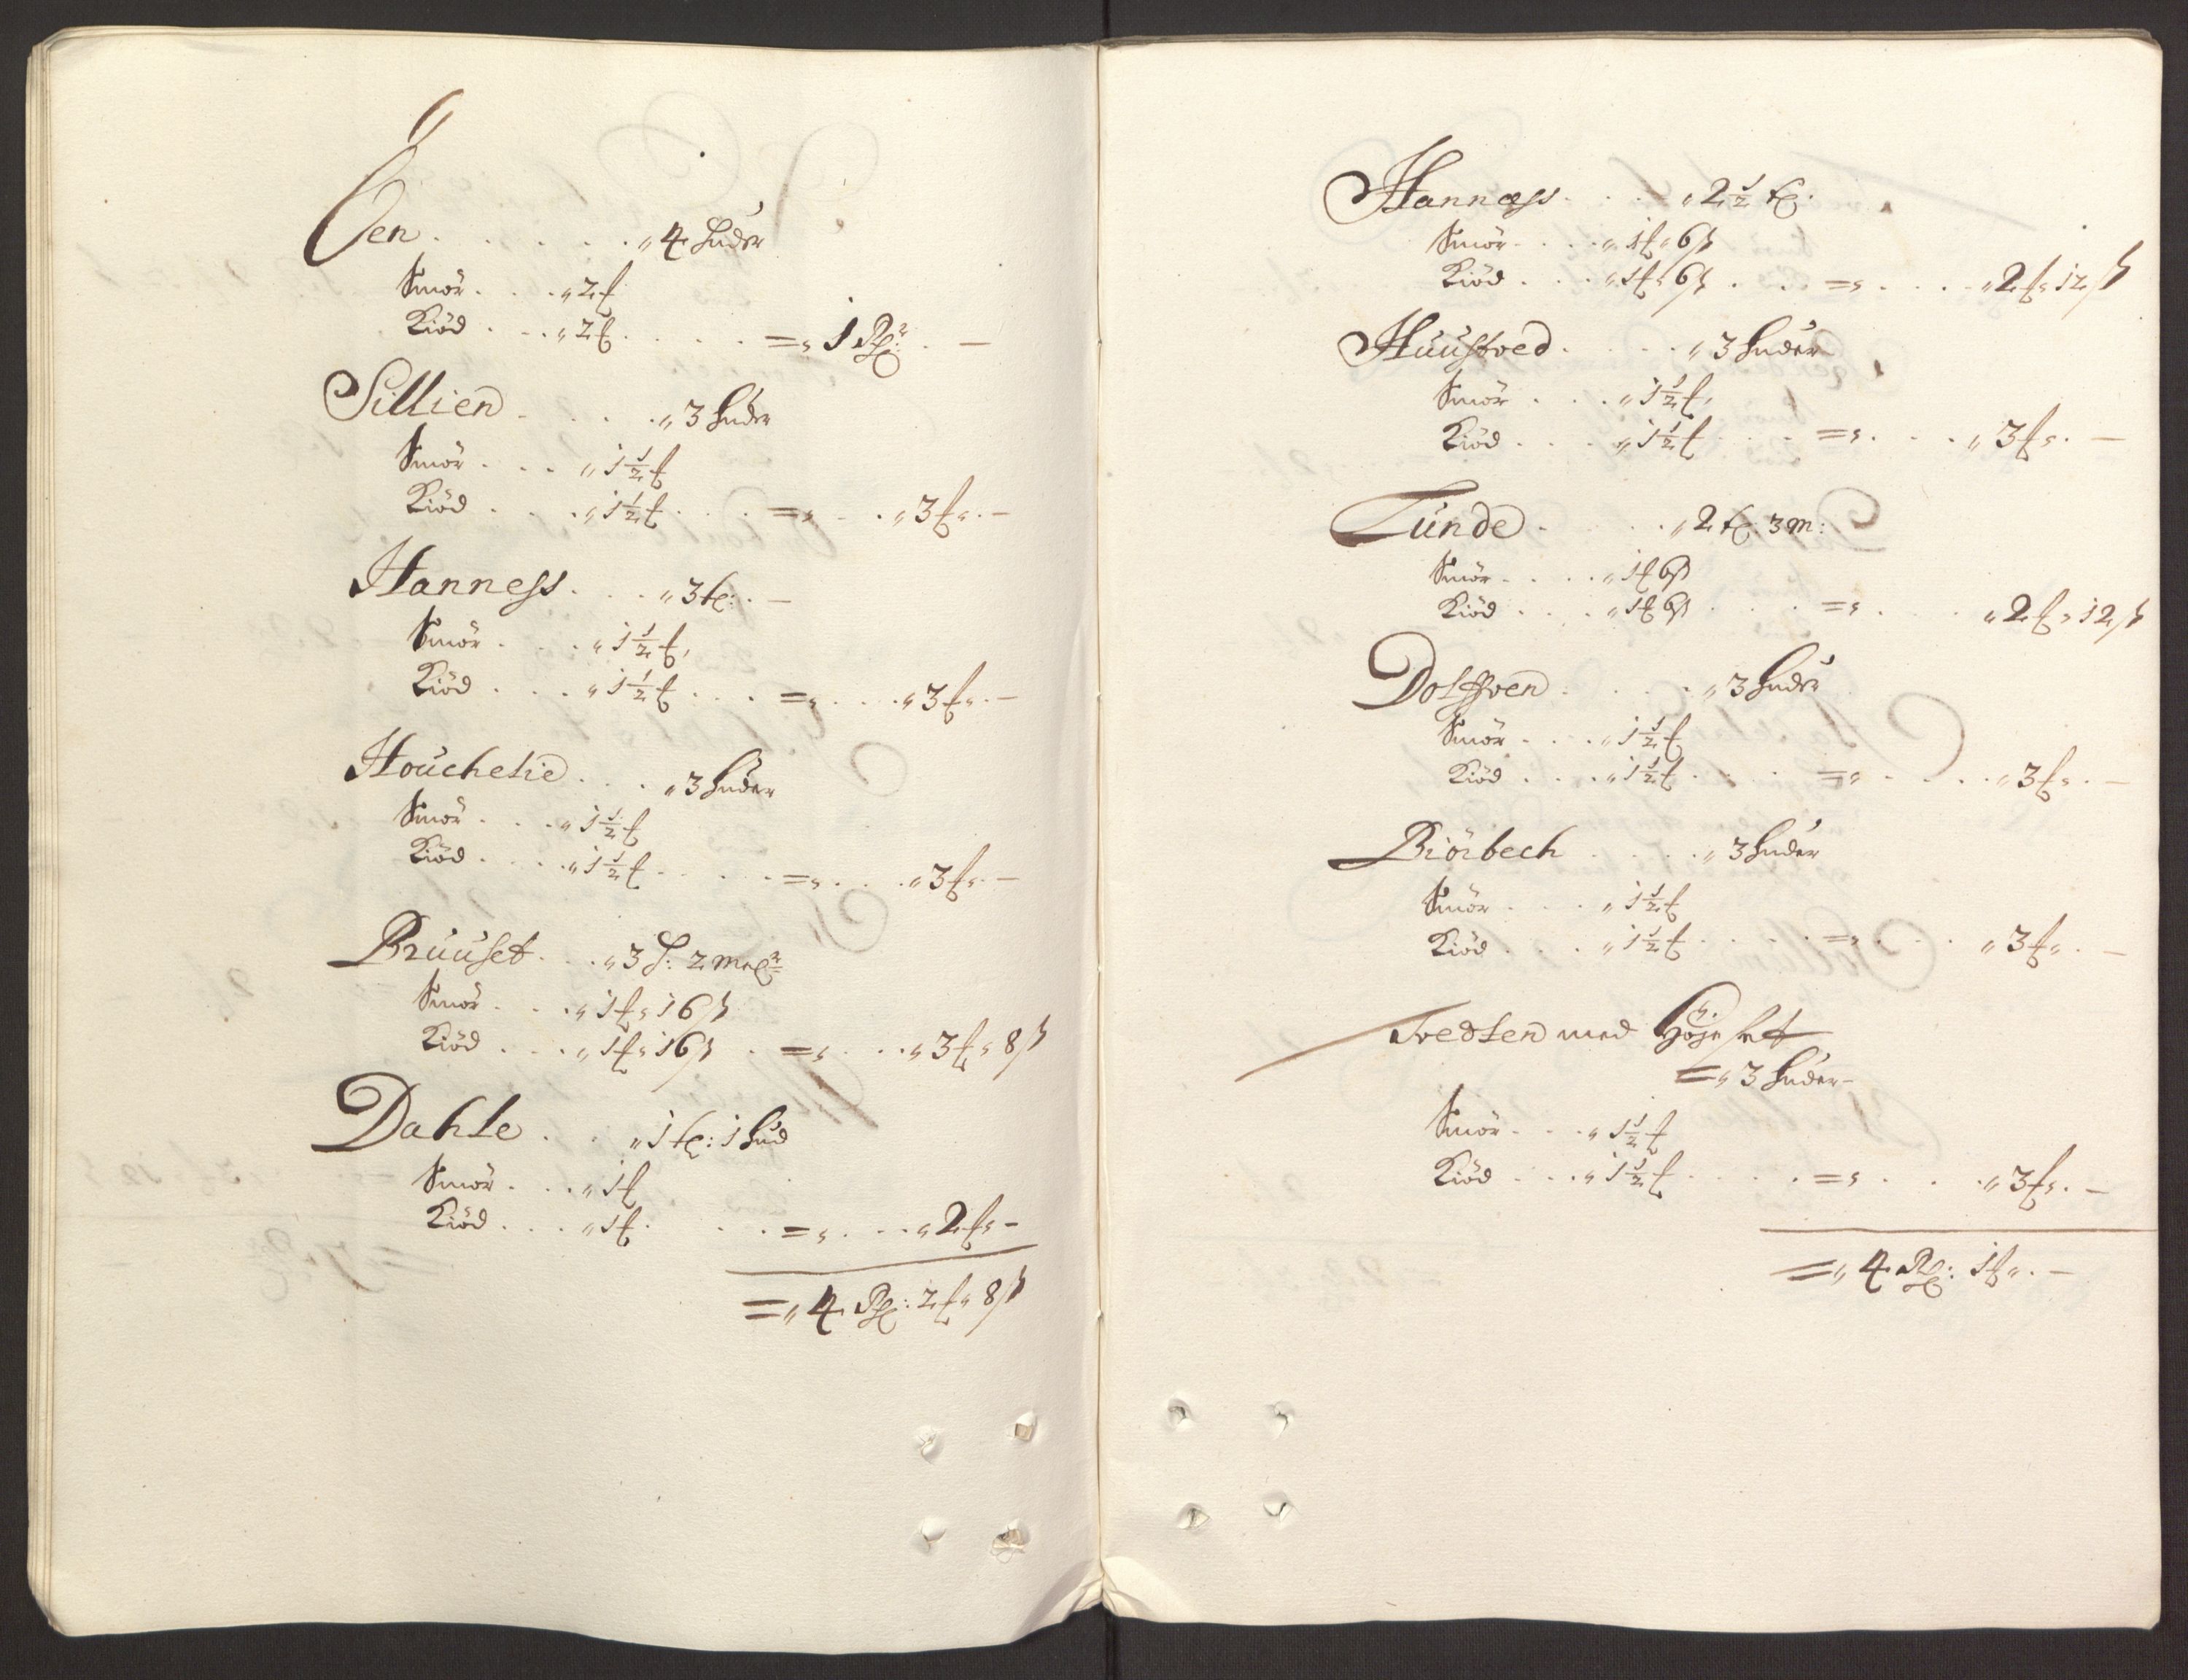 Öen . . . . . „ 4 Huder
Smör . . . „ 2 ℔
Kiöd . . . „ 2 ℔ . . . . = „ 1 Rdr: . —
Sillien . . . . „ 3 Huder
Smör . . . „ 1½ ℔
Kiöd . . . „ 1½ ℔ . . . = „ . . „ 3 ℔ „ . —
Hanness . . . „ 3 tℓ: . —
Smör . . . „ 1½ ℔,
Kiöd . . . „ 1½ ℔ . . . = „ . . . „ 3 ℔ „ . —
Houchelie . . . „ 3 Huder
Smör . . . „ 1½ ℔
Kiöd . . . „ 1½ ℔ . . . . = „ . . . „ 3 ℔ „ . —
Bruuset . . . „ 3 H: 2 melr
Smör . . . „ 1 ℔ „ 16 ß
Kiöd . . . „ 1 ℔ „ 16 ß . = „ . . . „ 3 ℔ „ 8 ß
Dahle . . . „ 1 tℓ: 1 Hud
Smör . . . „ 1 ℔
Kiöd . . . „ 1 ℔ . . . = „ . . . „ 2 ℔ „ —
= „ 4 Rd: 2 ℔ „ 8 ß
Hannæss . . . „ 2½ tℓ:
Smör . . . „ 1 ℔ „ 6 ß
Kiöd . . . „ 1 ℔ „ 6 ß . . . = „ . . . „ 2 ℔ „ 12 ß
Huustved . . . . „ 3 Huder
Smör . . . „ 1½ ℔,
Kiöd . . . „ 1½ ℔ . . . = „ . . . „ 3 ℔ „ . —
Tunde . . . . „ 2 tℓ: 3 m:
Smör . . . „ 1 ℔ 6 ß
Kiöd . . . „ 1 ℔ 6 ß . . . = „ . . . „ 2 ℔ „ 12 ß
Dolffven . . . . „ 3 Huder
Smör . . . „ 1½ ℔
Kiöd . . . „ 1½ ℔ . . . = „ . . . „ 3 ℔ „ . —
Biörbech . . . . „ 3 Huder
Smör . . . „ 1½ ℔
Kiöd . . . „ 1½ ℔ . . . . = „ . . . „ 3 ℔ „ . —
Tvedten med Höjeset
= „ 3 Huder —
Smör . . . „ 1½ ℔
Kiöd . . . „ 1½ ℔ . . . . = „ . . . „ 3 ℔ „ . —
= „ 4 Rd: 1 ℔ „ . —